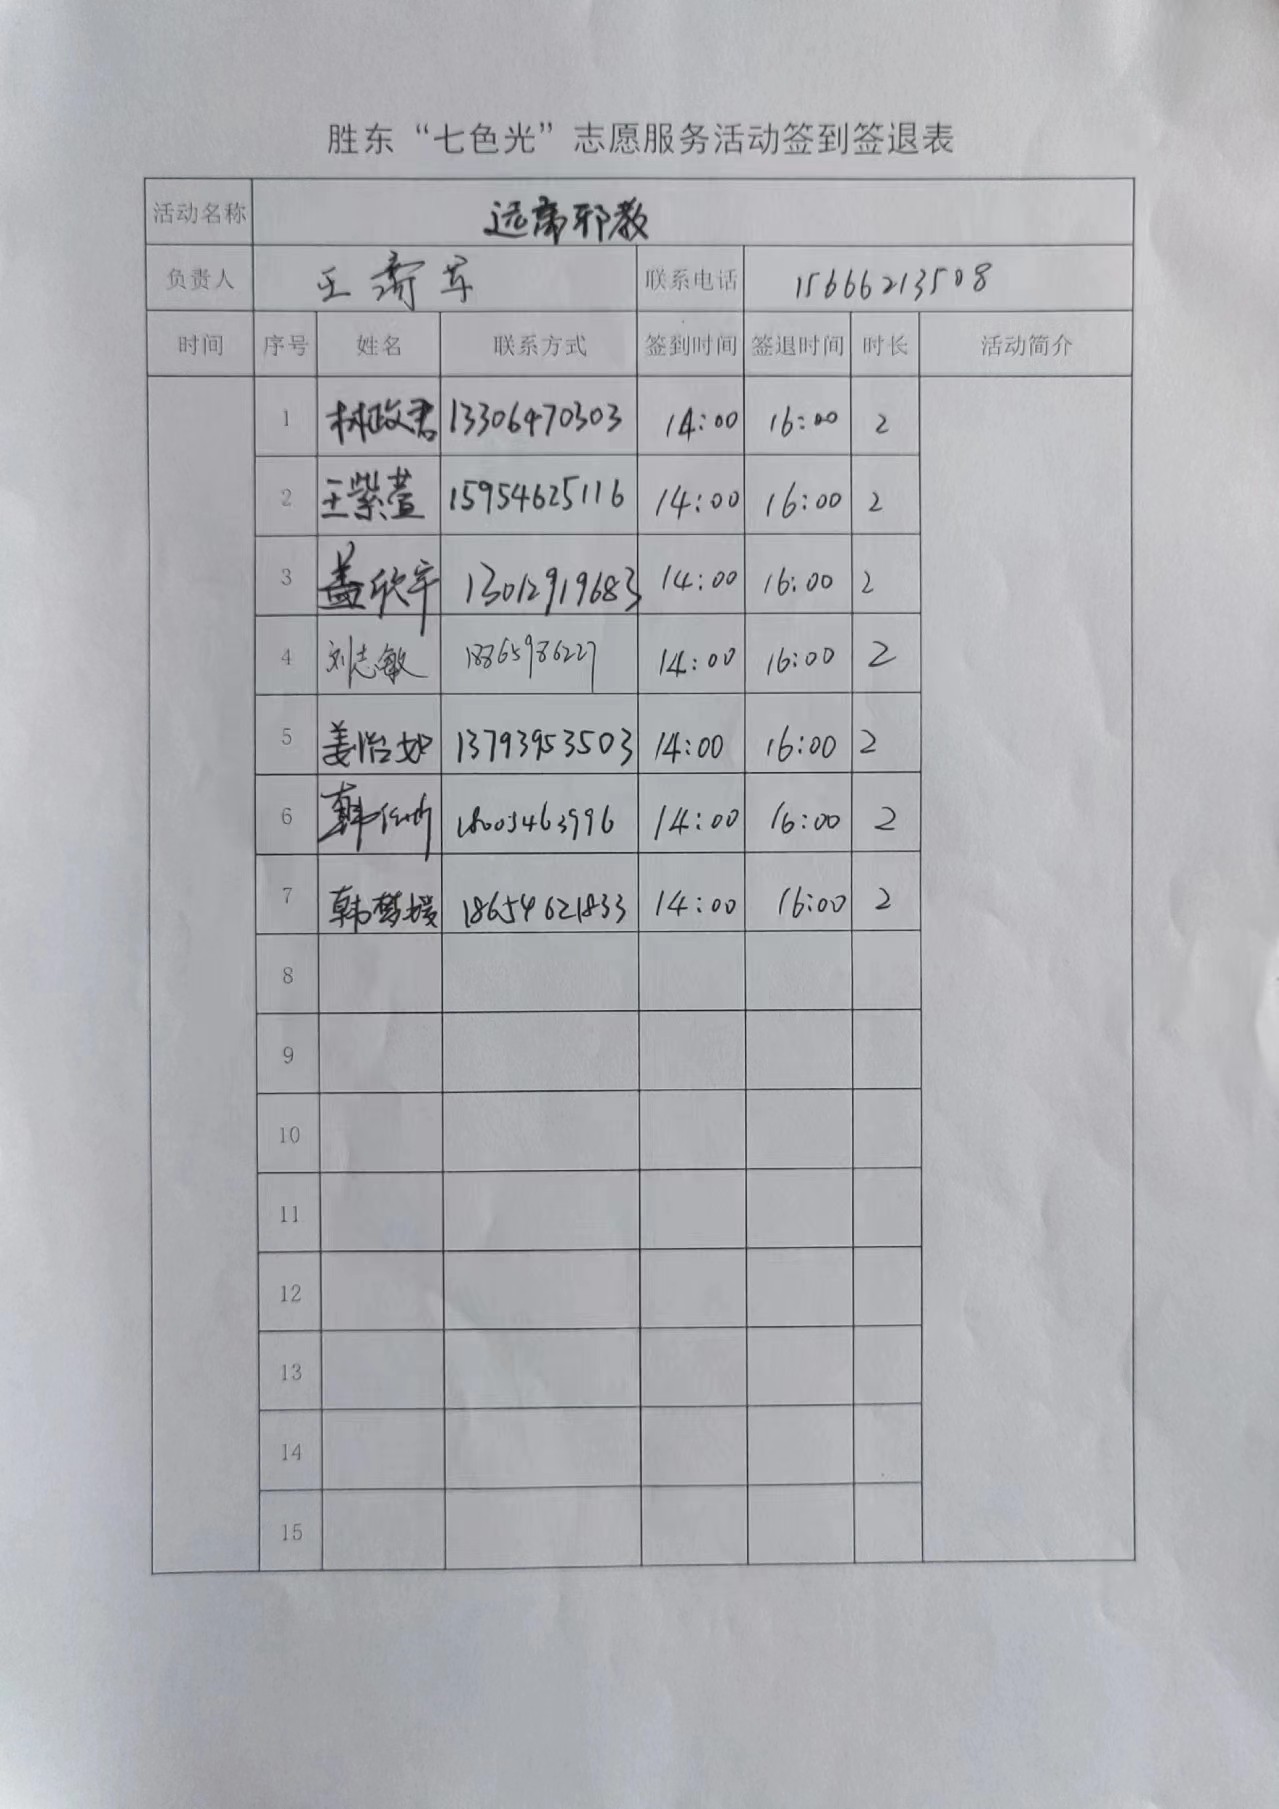 胜东“七色光”志愿服务活动签到签退表
活动名称 远离邪教
负责人 王 军 联系电话 15666213508
时间 序号 姓名 联系方式 签到时间 签退时间 时长 活动简介
1 林政君 13306470303 14:00 16:00 2
2 王紫萱 15954625116 14:00 16:00 2
3 盖欣宇 13012919683 14:00 16:00 2
4 刘志敏 18865986227 14:00 16:00 2
5 姜怡如 13793953503 14:00 16:00 2
6 韩 18005463996 14:00 16:00 2
7 韩梦媛 18654621833 14:00 16:00 2
8
9
10
11
12
13
14
15